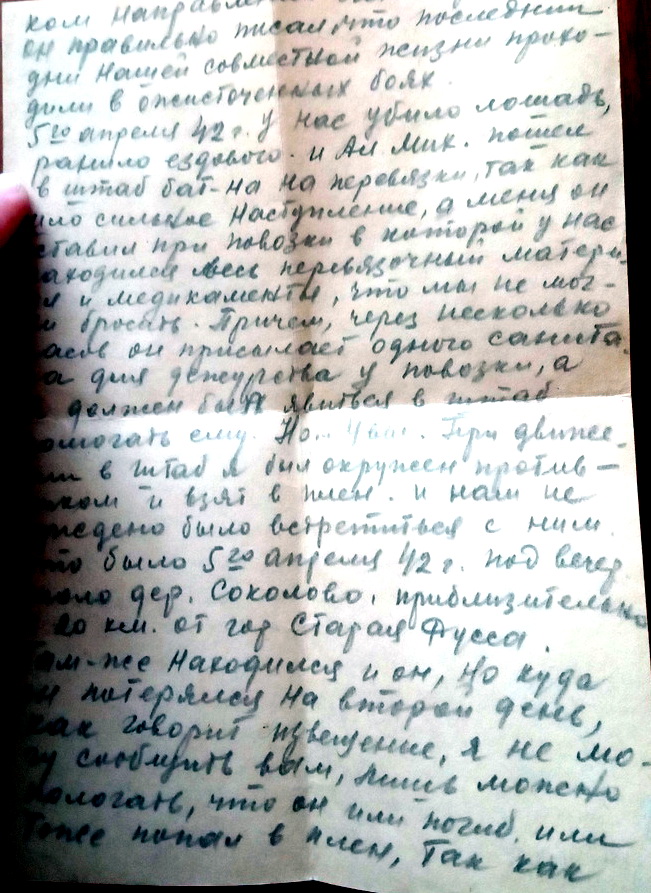 ком направлении
он правильно писал, что последнии
дни нашей совместной жизни прохо-
дили в ожисточенных боях.
5го апреля 42 г. у нас убило лошадь,
ранило ездового. и Ал. Мих. пошел
в штаб бат-на на перевязки, так как
ило сильное наступление, а меня он
ставил при повозки в которой у нас
аходился весь перевязочный матери-
л и медикаменты, что мы не мог-
и бросать. Причем, через несколько
асов он присылает одного санита-
а для дежурства у повозки, а
должен был явиться в штаб
омогать ему. Но... Увы. При движе-
ии в штаб я был окружен против-
ком и взят в плен. и нам не
ждено было встретиться с ним.
то было 5го апреля 42 г. под вечер
оло дер. Соколово, приблизительно
20 км. от гор Старая Русса.
ам-же находился и он, но куда
н потерялся на второй день,
как говорит извещение, я не мо-
гу сообщить вам, лишь можно
пологать, что он или погиб, или
тоже попал в плен, так как